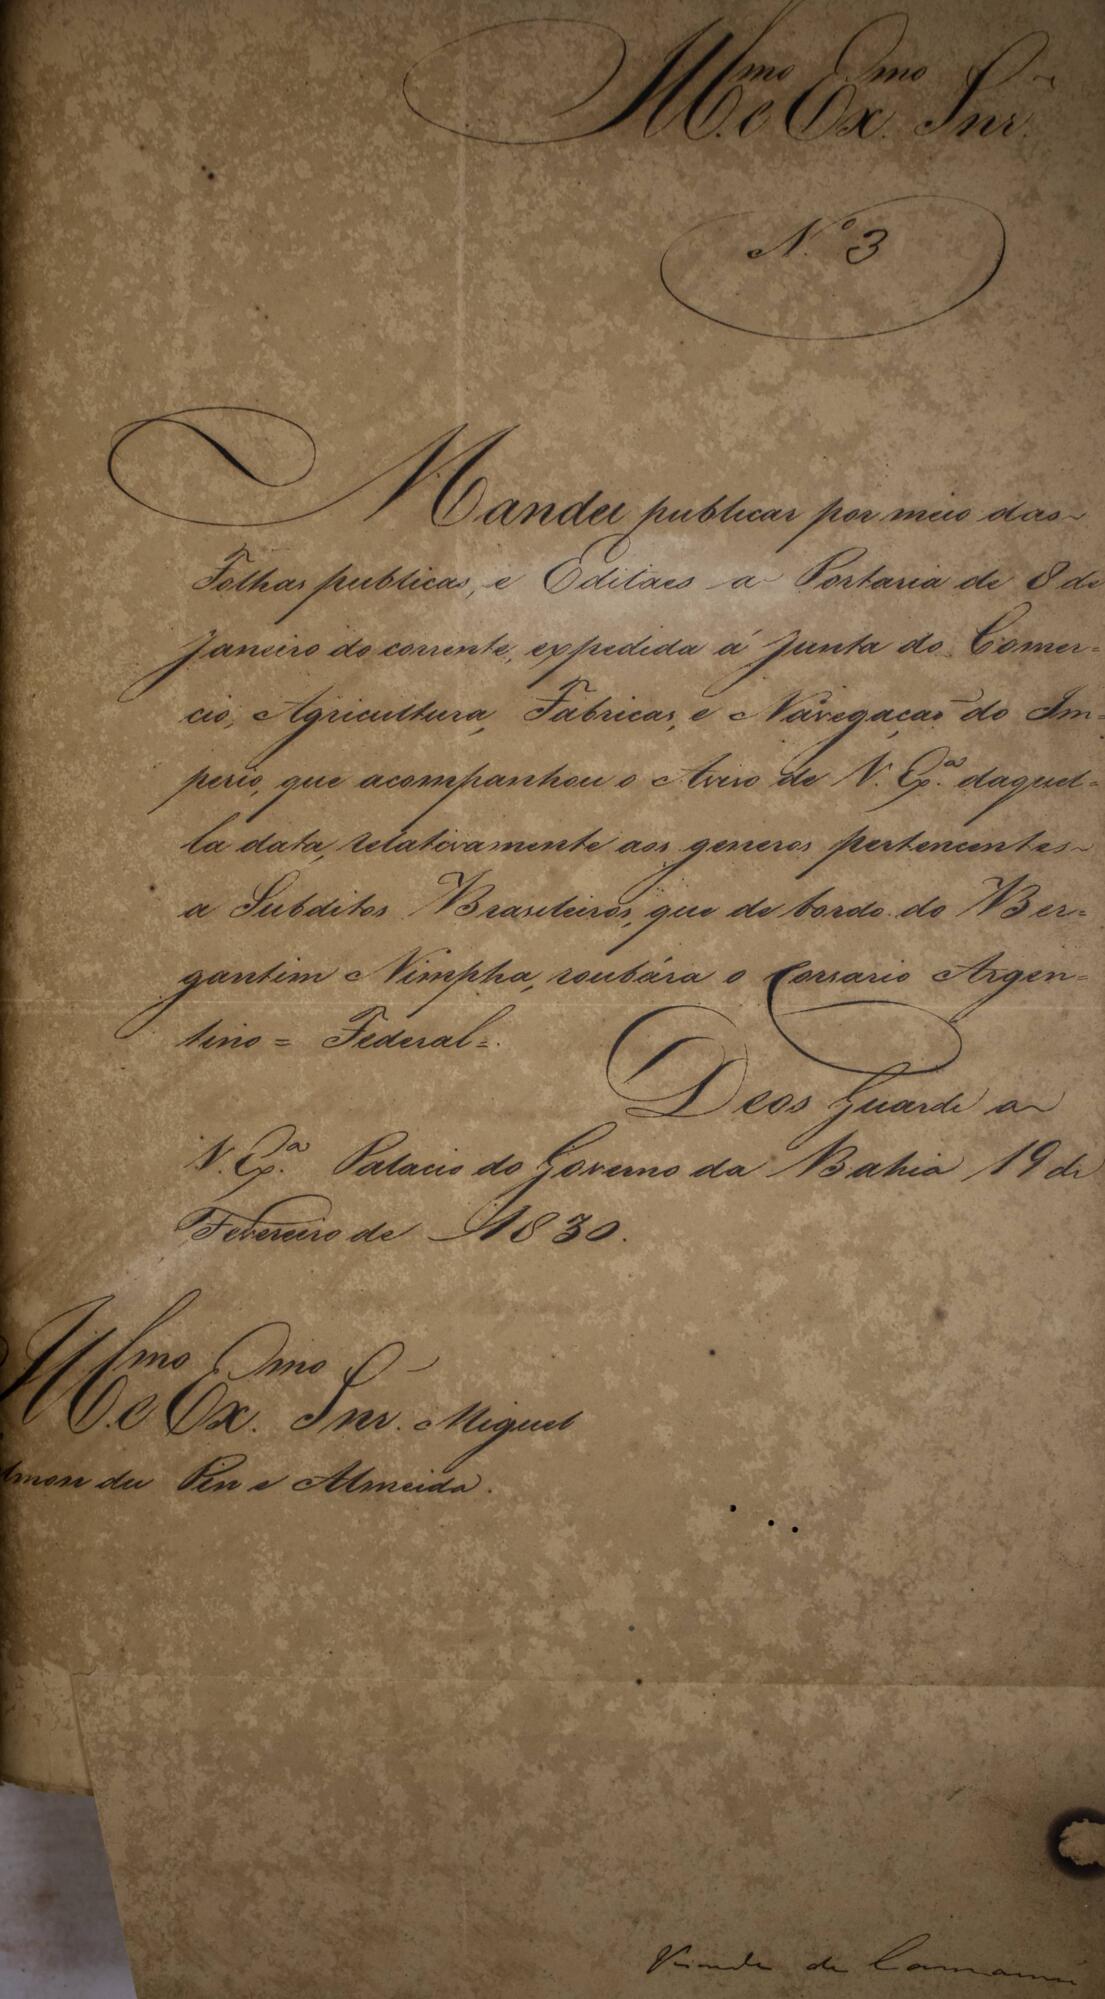 Ill.mo e Ex.mo Snr.
N.o 3
Mandei publicar por meio das
Folhas publicas, e Editaes a Portaria de 8 de
Janeiro do corrente, expedida á Junta do Comer=
cio, Agricultura, Fabricas, e Navegação do Im=
perio, que acompanhou o Aviso de V. Ex.a daquel=
la data, relativamente aos generos pertencentes
a Subditos Brasileiros, que de bordo do Ber=
gantim Nimpha, roubára o Corsario Argen=
tino = Federal =.
Deos Guarde a
V. Ex.a Palacio do Governo da Bahia 19 de
Fevereiro de 1830.
Ill.mo e Ex.mo Snr. Miguel
lmon du Pin e Almeida.
Visconde de Camamú